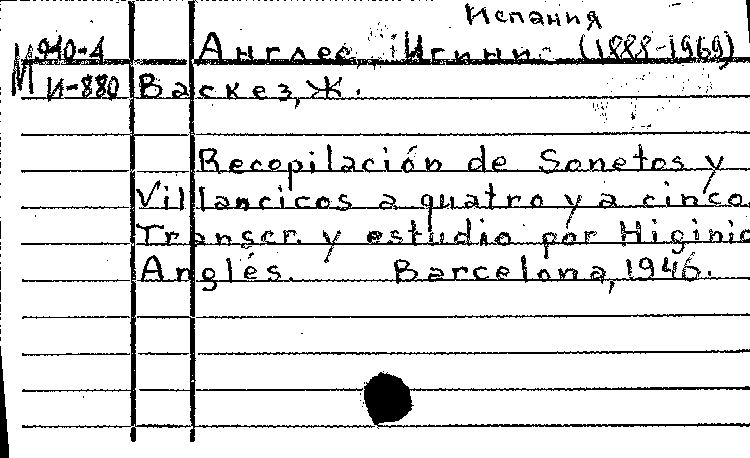 Испания
М 940-4 Англес, Игинио (1888-1969)
И-880 Васкез, Ж.
Recopilación de Sonetos y
Villancicos a quatro y a cinco.
Transcr. y estudio por Higinio
Anglés. Barcelona, 1946.